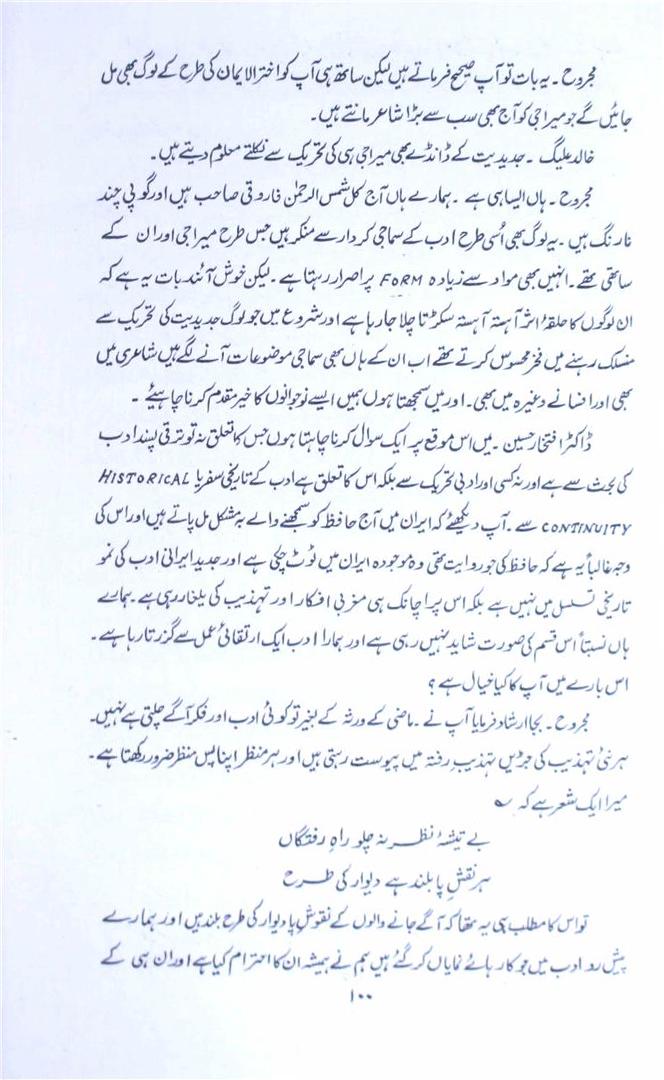 مجروح ۔ یہ بات تو آپ صحیح فرماتے ہیں لیکن ساتھ ہی آپ کو اختر الایمان کی طرح کے لوگ بھی مل
جائیں گے جو میرا جی کو آج بھی سب سے بڑا شاعر مانتے ہیں۔
خالد علیگ ۔ جدیدیت کے ڈانڈے بھی میرا جی ہی کی تحریک سے نکلتے معلوم دیتے ہیں۔
مجروح ۔ ہاں ایسا ہی ہے ۔ ہمارے ہاں آج کل شمس الرحمٰن فاروقی صاحب ہیں اور گوپی چند
نارنگ ہیں ۔ یہ لوگ بھی اُسی طرح ادب کے سماجی کردار سے منکر ہیں جس طرح میرا جی اور ان کے
ساتھی تھے ۔ انہیں بھی مواد سے زیادہ FORM پر اصرار رہتا ہے ۔ لیکن خوش آئند بات یہ ہے کہ
ان لوگوں کا حلقۂ اثر آہستہ آہستہ سکڑتا چلا جا رہا ہے اور شروع میں جو لوگ جدیدیت کی تحریک سے
منسلک رہنے میں فخر محسوس کرتے تھے اب ان کے ہاں بھی سماجی موضوعات آنے لگے ہیں شاعری میں
بھی اور افسانے وغیرہ میں بھی ۔ اور میں سمجھتا ہوں ہمیں ایسے نوجوانوں کا خیر مقدم کرنا چاہیئے ۔
ڈاکٹر افتخار حسین ۔ میں اس موقع پر ایک سوال کرنا چاہتا ہوں جس کا تعلق نہ تو ترقی پسند ادب
کی بحث سے ہے اور نہ کسی اور ادبی تحریک سے بلکہ اس کا تعلق ہے ادب کے تاریخی سفر یا HISTORICAL
CONTINUITY سے ۔ آپ دیکھئے کہ ایران میں آج حافظ کو سمجھنے والے بہ مشکل مل پاتے ہیں اور اس کی
وجہ غالباً یہ ہے کہ حافظ کی جو روایت تھی وہ موجودہ ایران میں ٹوٹ چکی ہے اور جدید ایرانی ادب کی نمو
تاریخی تسلسل میں نہیں ہے بلکہ اس پر اچانک ہی مغربی افکار اور تہذیب کی یلغار رہی ہے ۔ ہمارے
ہاں نسبتاً اس قسم کی صورت شاید نہیں رہی ہے اور ہمارا ادب ایک ارتقائی عمل سے گزرتا رہا ہے ۔
اس بارے میں آپ کا کیا خیال ہے ؟
مجروح ۔ بجا ارشاد فرمایا آپ نے ۔ ماضی کے ورثہ کے بغیر تو کوئی ادب اور فکر آگے چلتی ہے نہیں۔
ہر نئی تہذیب کی جڑیں تہذیبِ رفتہ میں پیوست رہتی ہیں اور ہر منظر اپنا پس منظر ضرور رکھتا ہے ۔
میرا ایک شعر ہے کہ ؎
بے تیشۂ نظر نہ چلو راہِ رفتگاں
ہر نقشِ پا بلند ہے دیوار کی طرح
تو اس کا مطلب ہی یہ تھا کہ آگے جانے والوں کے نقوشِ پا دیوار کی طرح بلند ہیں اور ہمارے
پیش رو ادب میں جو کارہائے نمایاں کر گئے ہیں ہم نے ہمیشہ ان کا احترام کیا ہے اور ان ہی کے
۱۰۰